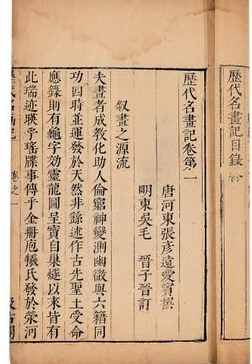 歷代名畫記目錄 終
歷代名畫記卷第一
唐河東張彥遠愛賓撰
明東吳毛 晉子晉訂
叙畫之源流
夫畫者成教化助人倫窮神變測幽微與六籍同
功四時並運發於天然非繇述作古先聖王受命
應籙則有龜字效靈龍圖呈寶自巢燧以來皆有
此瑞迹暎乎瑤牒事傳乎金冊庖犧氏發於滎河
卷之一